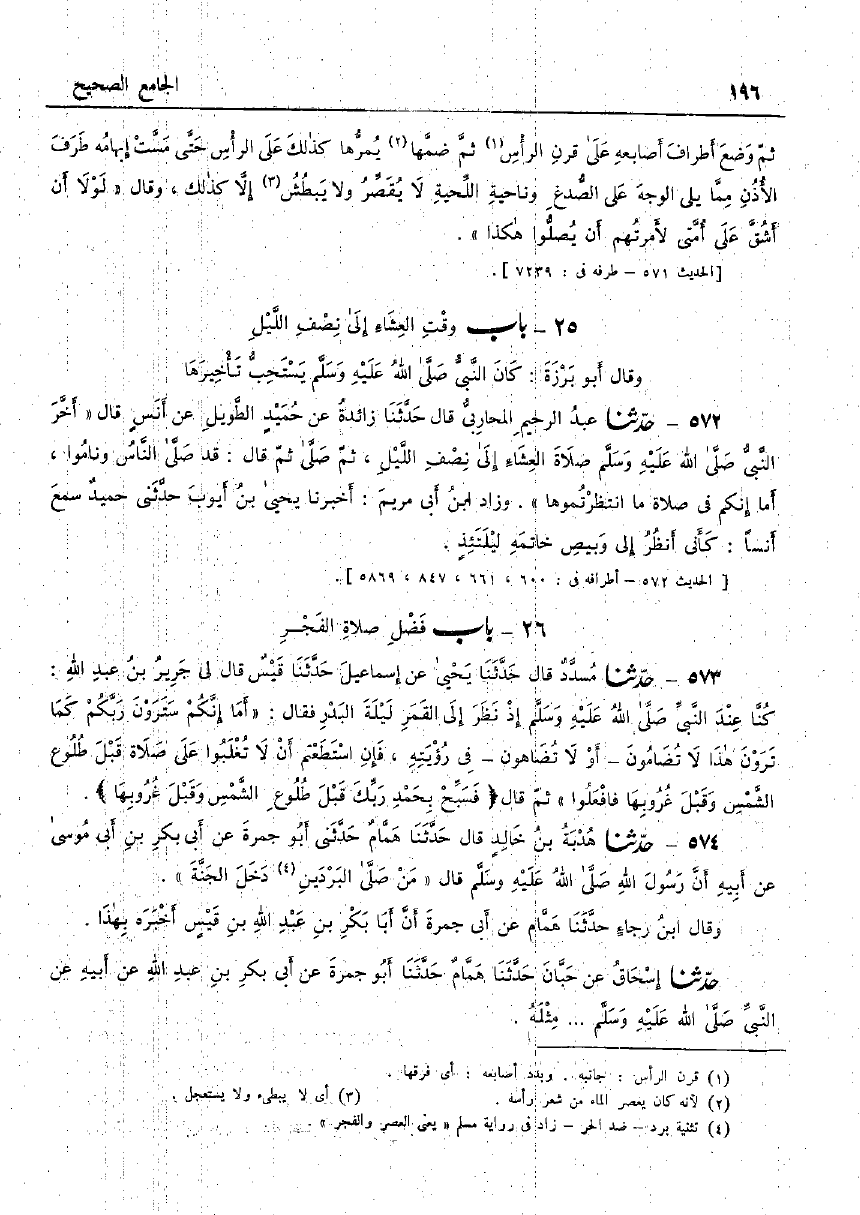 ١٩٦ الجامع الصحيح
ثمّ وَضعَ أطرافَ أصابعهِ عَلَىٰ قرنِ الرأْسِ(١) ثمَّ ضمَّها(٢) يُمرُّها كذٰلكَ عَلَى الرأْسِ حَتَّى مَسَّتْ إبهامُه طَرَفَ
الأُذُنِ مِمَّا يلى الوجهَ عَلى الصُّدغِ وناحيةِ اللِّحيةِ لَا يُقَصِّرُ ولا يَبطُشُ(٣) إِلَّا كذٰلك ، وقال « لَوْلَا أَن
أَشُقَّ عَلَى أُمَّتى لأَمرتُهم أَن يُصلُّوا هٰكذا » .
[الحديث ٥٧١ – طرفه فى : ٧٢٣٩ ] .
٢٥ – باب وقْتِ العِشَاءِ إِلَىٰ نِصْفِ اللَّيْلِ
وقال أَبو بَرْزَةَ : كَانَ النَّبىُّ صَلَّى اللهُ عَلَيْهِ وَسَلَّم يَسْتَحِبُّ تَأْخِيرَهَا
٥٧٢ – حدّثنا عبدُ الرحيمِ المحاربىُّ قال حَدَّثَنَا زائدةُ عن حُمَيْدٍ الطَّويلِ عن أَنَسٍ قال « أَخَّرَ
النَّبىُّ صَلَّى الله عَلَيْهِ وَسَلَّم صَلَاةَ العِشَاءِ إِلَىٰ نِصْفِ اللَّيْلِ ، ثمّ صَلَّىٰ ثمّ قال : قد صَلَّى النَّاسُ ونامُوا ،
أما إِنكم فى صلاة ما انتظرْتُموها » . وزاد ابنُ أبى مريمَ : أخبرنا يحيىٰ بنُ أيوبَ حدَّثنى حميدٌ سمعَ
أَنساً : كَأَنى أَنظُرُ إلى وَبيصِ خاتمهِ لَيْلَتَئِذٍ .
[ الحديث ٥٧٢ – أطرافه فى : ٦٠٠ ، ٦٦١ ، ٨٤٧ ، ٥٨٦٩ ] .
٢٦ – باب فَضْلِ صلاةِ الفَجْرِ
٥٧٣ – حدّثنا مُسدَّدٌ قال حَدَّثَنَا يَحْيىٰ عن إسماعيلَ حَدَّثَنَا قَيْسٌ قال لى جَرِيرُ بنُ عبدِ اللهِ :
كُنَّا عِنْدَ النَّبىِّ صَلَّى اللهُ عَلَيْهِ وَسَلَّم إِذْ نَظَرَ إِلَى القَمَرِ لَيْلَةَ البَدْرِ فقال : «أَمَا إِنَّكُمْ سَتَرَوْنَ رَبَّكُمْ كَمَا
تَرَوْنَ هٰذَا لَا تُضَامُونَ – أَوْ لَا تُضَاهون – فى رُؤْيَتِهِ ، فَإِنِ اسْتَطَعْتم أَنْ لَا تُغْلَبُوا عَلَى صَلَاة قَبْلَ طُلُوع
الشَّمْسِ وَقَبْلَ غُرُوبِهَا فافْعَلُوا » ثمّ قال ﴿ فَسَبِّحْ بِحَمْدِ رَبِّكَ قَبْلَ طُلُوعِ الشَّمْسِ وَقَبْلَ غُرُوبِهَا ﴾ .
٥٧٤ – حدّثنا هُدْبَةُ بنُ خَالدٍ قال حَدَّثَنَا هَمَّامٌ حَدَّثَنى أَبُو جمرةَ عن أبى بكرِ بنِ أبى مُوسىٰ
عن أَبيهِ أَنَّ رَسُولَ اللهِ صَلَّى اللهُ عَلَيْهِ وسَلَّم قال « مَنْ صَلَّىٰ البَرْدَينِ(٤) دَخَلَ الجنَّةَ » .
وقال ابنُ رجاءٍ حدَّثَنَا هَمَّام عن أبى جمرةَ أَنَّ أَبَا بَكْرِ بنِ عَبْدِ اللهِ بنِ قَيْسٍ أَخْبَرَه بِهٰذَا .
حدّثنا إِسْحَاقُ عن حَبَّانَ حَدَّثَنَا هَمَّامٌ حَدَّثَنَا أَبُو جمرةَ عن أبى بكرِ بنِ عبدِ اللهِ عن أبيهِ عن
النَّبىِّ صَلَّى الله عَلَيْهِ وَسَلَّم ... مِثْلَهُ .
(١) قرن الرأس : جانبه . وبدد أصابعه : أى فرقها .
(٢) لأنه كان يعصر الماء من شعر رأسه . (٣) أى لا يبطىء ولا يستعجل .
(٤) تثنية برد – ضد الحر – زاد فى رواية مسلم « يعنى العصر والفجر » .